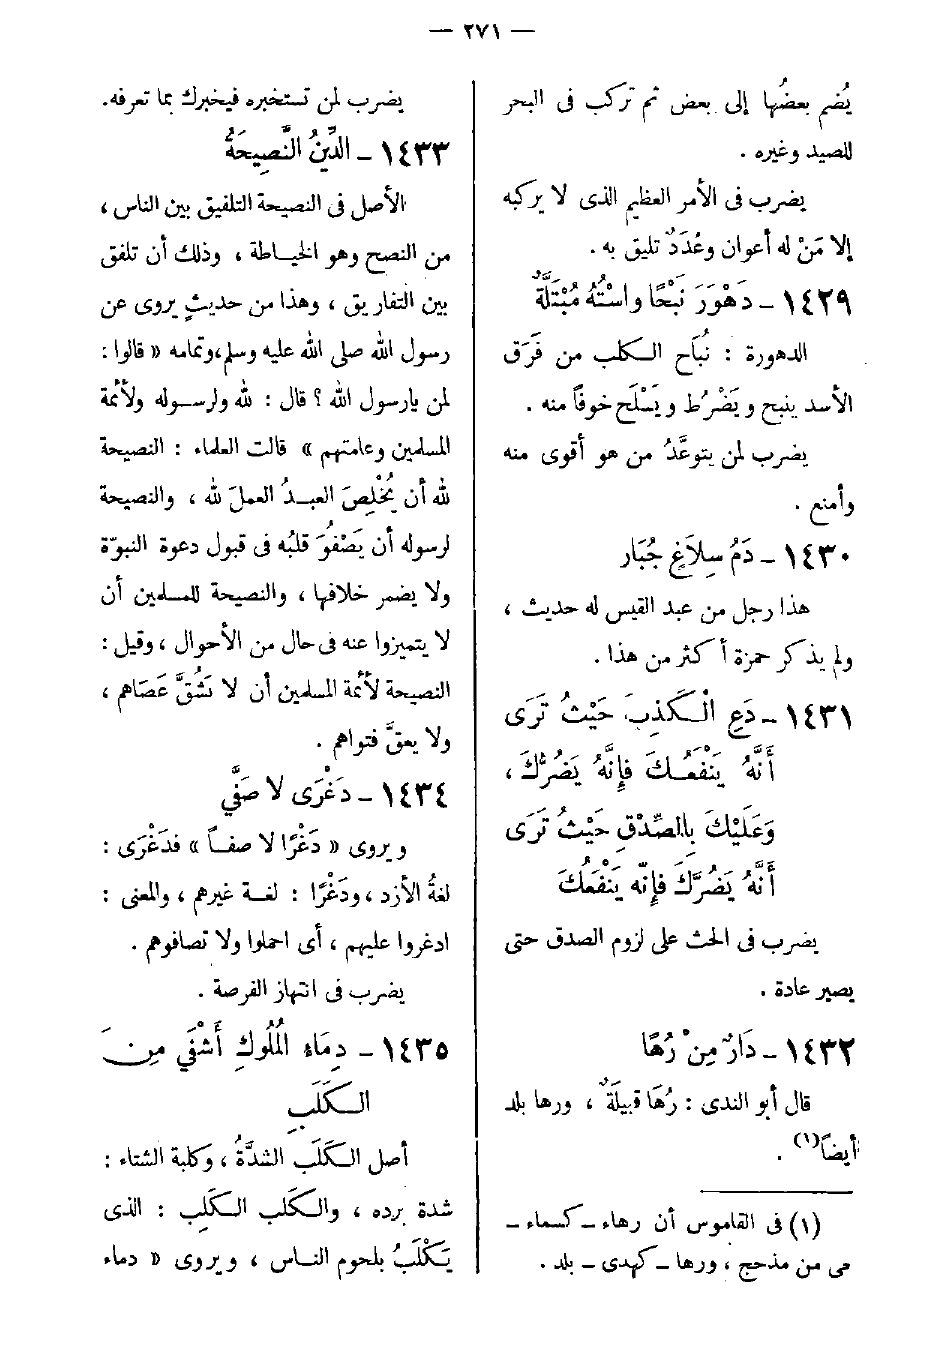 — ٢٧١ —
يُضم بعضُها إلى بعض ثم تركب فى البحر
للصيد وغيره .
يضرب فى الأمر العظيم الذى لا يركبه
إلا مَنْ له أعوان وعُدَدٌ تليق به .
١٤٢٩ – دَهْوَرَ نَبْحًا واسْتُهُ مُبْتَلَّةٌ
الدهورة : نُبَاح الكلب من فَرَق
الأسد ينبح و يَضْرُط و يَسْلَح خوفاً منه .
يضرب لمن يتوعَّدُ من هو أقوى منه
وأمنع .
١٤٣٠ – دَمُ سِلاَغٍ جُبَار
هذا رجل من عبد القيس له حديث ،
ولم يذكر حمزة أكثر من هذا .
١٤٣١ – دَعِ الْكَذِبَ حَيْثُ تَرَى
أَنَّهُ يَنْفَعُكَ فإِنَّهُ يَضُرُّكَ ،
وَعَلَيْكَ بِالصِّدْقِ حَيْثُ تَرَى
أَنَّهُ يَضُرُّكَ فإنّه يَنْفَعُكَ
يضرب فى الحث على لزوم الصدق حتى
يصير عادة .
١٤٣٢ – دَارٌ مِنْ رُهَا
قال أبو الندى : رُهَا قبيلَةٌ ، ورها بلد
أيضاً(١) .
(١) فى القاموس أن رهاء – كسماء –
حى من مذحج ، ورها – كهدى – بلد .
يضرب لمن تستخبره فيخبرك بما تعرفه.
١٤٣٣ – الدِّينُ النَّصِيحَةُ
الأصل فى النصيحة التلفيق بين الناس ،
من النصح وهو الخياطة ، وذلك أن تلفق
بين التفاريق ، وهذا من حديثٍ يروى عن
رسول الله صلى الله عليه وسلم،وتمامه « قالوا :
لمن يارسول الله ؟ قال : لله ولرسوله ولأئمة
المسلمين وعامتهم » قالت العلماء : النصيحة
لله أن يُخْلِصَ العبدُ العملَ لله ، والنصيحة
لرسوله أن يَصْفُوَ قلبُه فى قبول دعوة النبوّة
ولا يضمر خلافها ، والنصيحة للمسلمين أن
لا يتميزوا عنه فى حال من الأحوال ، وقيل :
النصيحة لأئمة المسلمين أن لا تَشُقَّ عَصَاهم ،
ولا يعقَّ فتواهم .
١٤٣٤ – دَغْرَى لا صَفَّى
ويروى « دَغْرًا لا صفاً » فدَغْرَى :
لغةُ الأزد ، ودَغْرًا : لغة غيرهم ، والمعنى :
ادغروا عليهم ، أى احملوا ولا تصافوهم .
يضرب فى انتهاز الفرصة .
١٤٣٥ – دِمَاءُ الْمُلُوكِ أَشْفَى مِنَ
الكَلَبِ
أصل الكَلَب الشدَّةُ ، وكلبة الشتاء :
شدة برده ، والكَلب الكَلِب : الذى
يَكْلَبُ بلحوم الناس ، ويروى « دماء